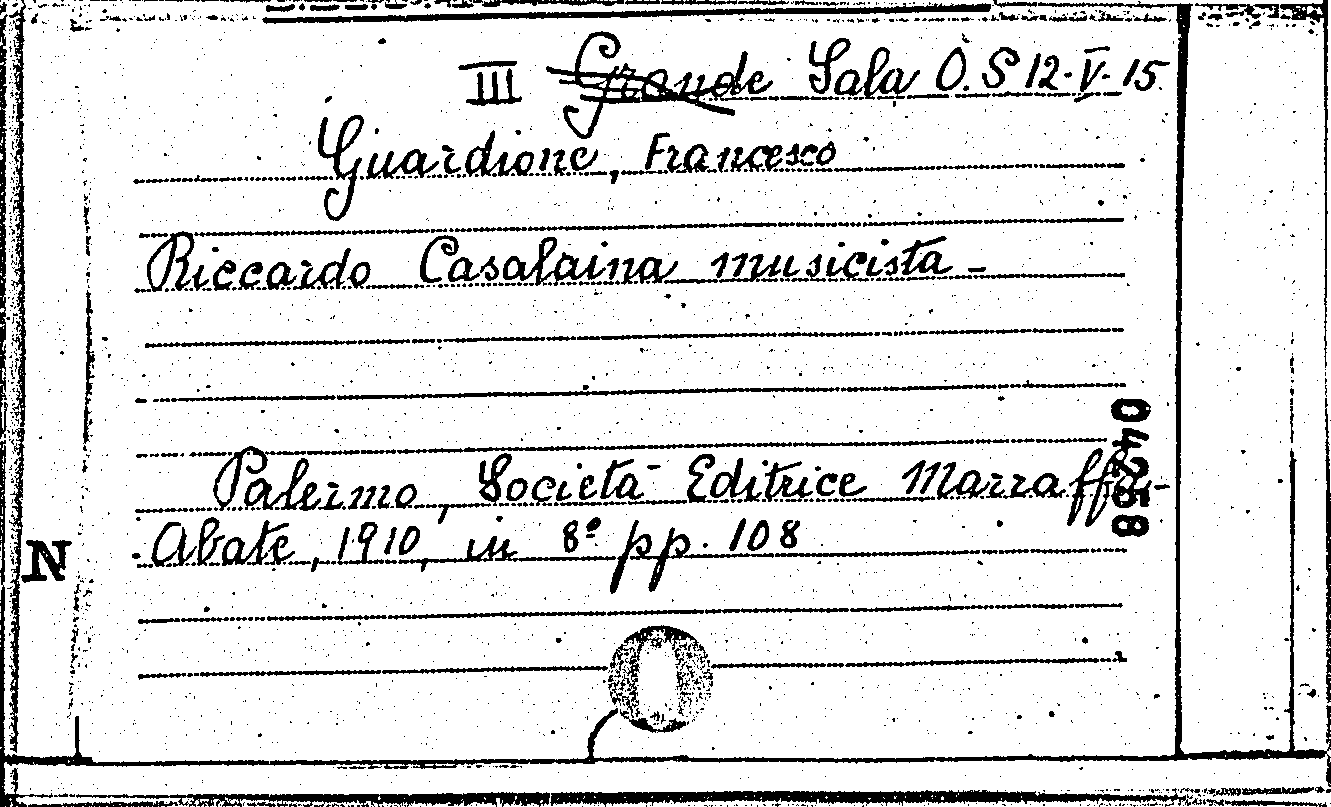 III Grande Sala O.S 12.V.15
Guardione, Francesco
Riccardo Casalaina musicista -
Palermo, Società Editrice Marraffa-
Abate, 1910, in 8° pp. 108
04258
N